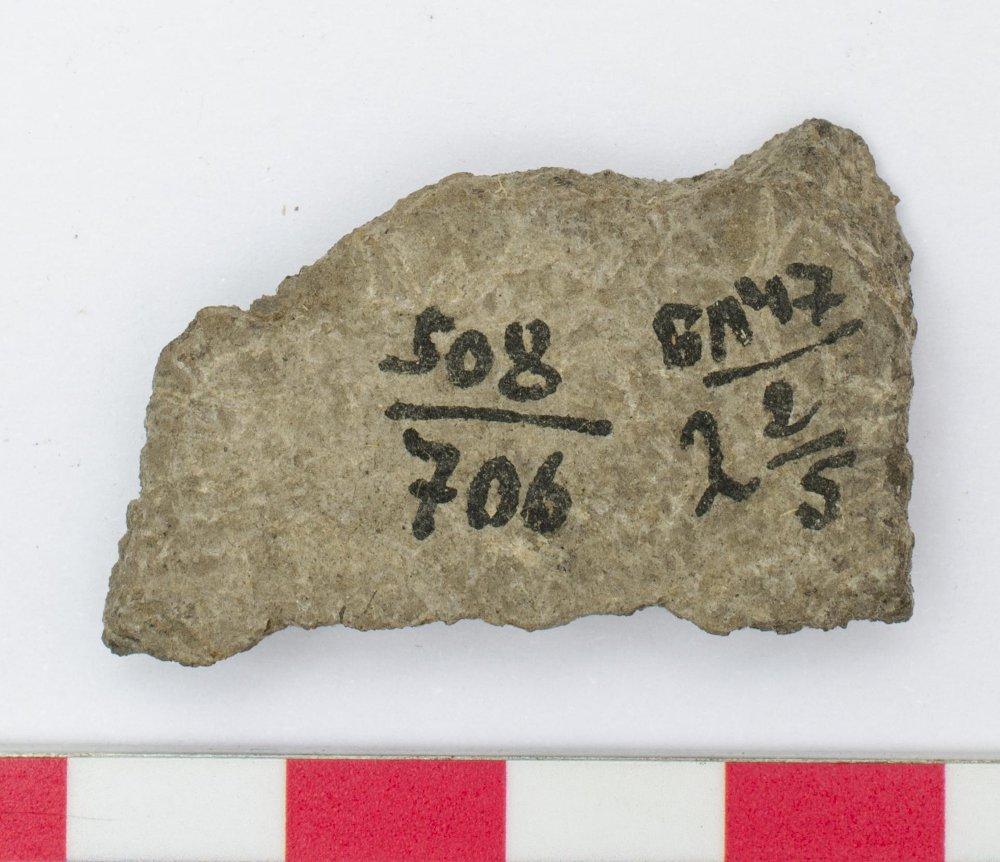 508
706
БП47
2 2/5